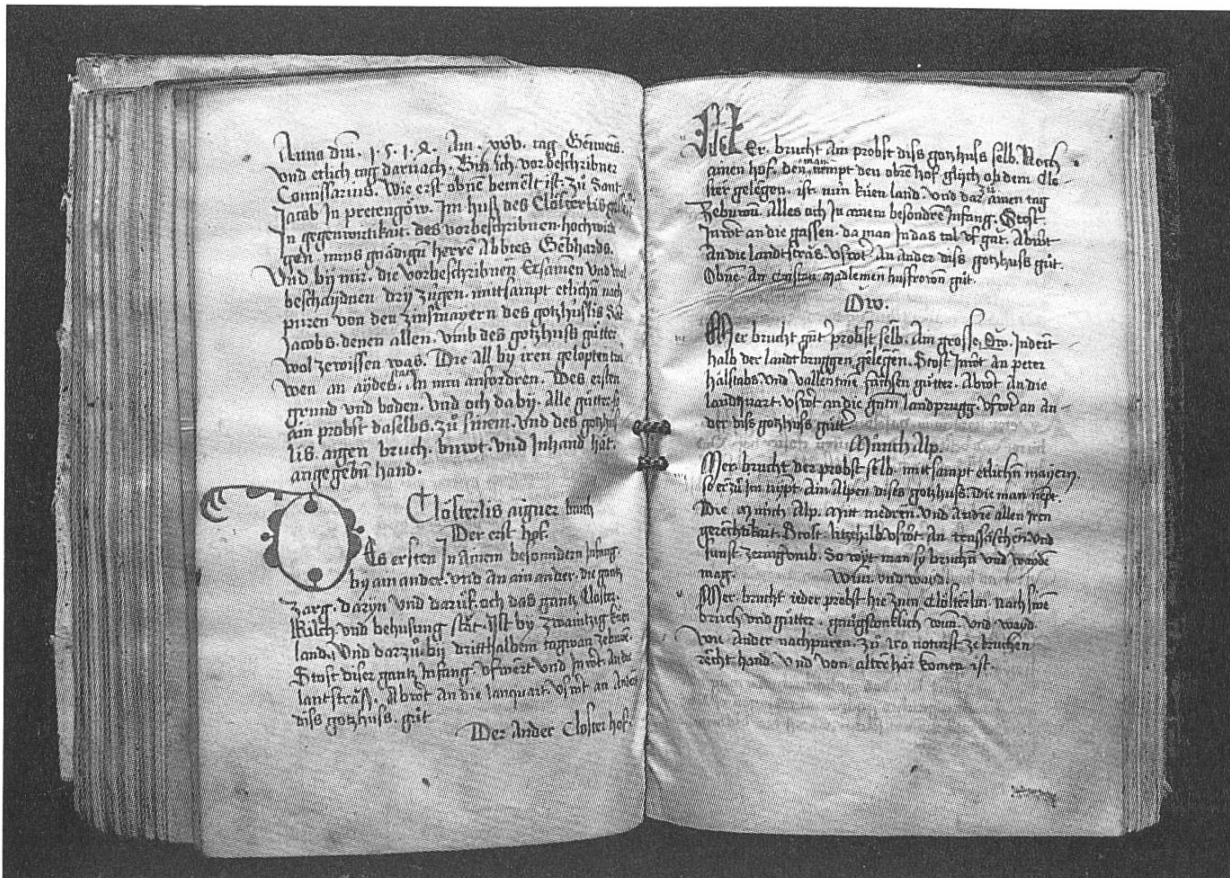 Anna dm̄. 1.5.1.8. Am. xxv. tag Genners.
vnd etlich tag darnach. Bin ich vorbeschribner
Comissarius. Wie erst obne bemelt ist. Zů Sant
Jacob Jn pretengöw. Jm huß des Clösterlis
Jn gegenwirtikait. des vorbeschribnen hochwir
gen. mins gnädign̄ herrē Abbtes Gebhards.
Vnd by mir. die vorbeschribnen Ersamen vnd wol
beschaydnen dry zůgen. mitsampt etlichn̄ nach
puren von den zinßmayern des gotzhußlis Sā
Jacobs. denen allen. vmb des gotzhuß gůtter
wol zewissen was. Die all by iren gelopten trü
wen an aydes statt An min anfordren. Des ersten
grund vnd boden. Vnd och daby. Alle gůtter so
ain probst daselbs. zů sinem. vnd des gotzhuß
lis. aigen bruch. buwt. vnd Jnhand hät.
angegebn̄ hand.
Clösterlis aigner bruch
Der erst hof.
Des ersten Jn Ainem besonndern Jnfang.
by ain ander. vnd An ain ander. die gantz
zarg. daryn vnd daruf. och das gantz Closter.
Kilch vnd behusung stät. ist by zwaintzig küen
land. Vnd darzů. by dritthalben tagwan zebuwē.
Stost diser gantz Jnfang vfwert vnd Jnwt. An die
lantsträß. Abwt An die lanquart. Vswt an Ander
diß gotzhuß. gůt
Der Ander Closter hof.
Mer. brucht Ain probst diß gotzhuß selb. Noch
ainen hof. den man nempt den obrē hof glijch ob dem Clo
ster gelegen. ist. nün küen land. vnd dar zů ainen tag
zebuwn̄. Alles och Jn ainem besondrē Jnfang. Stost.
Jnwt an die gassen. da man Jn das tal vf gat. Abwt
An die landtsträß. vswt. An ander diß gotzhuß gůt.
Obnē. An Cristan madlemen husfrowen gůt.
Ow.
Mer brucht gūt probst selb. Ain grosse. Ow. Jndert
halb der landtbruggen gelegen. Stost Jnwt. An peter
hälstabs. vnd vallentine fätschen gůtter. Abwt An die
landtquart. vswt an die gūtn̄ landprugg. vfwt an an
der diß gotzhuß gůtt
Münch Alp.
Mer brucht der probst selb. mitsampt etlichn̄ mayern.
so er zů im nÿpt. Ain Alpen dises gotzhuß. die man nēpt.
Die Münch Alp. Mit medern. vnd An die allen iren
gerechtikait. Stost. vswt. An
sunst. zeringvmb. So wyt man sy bruchn̄ vnd wayden
mag.
Wun. vnd wayd.
Mer. brucht probst hie zum Clösterlin. nach sinē
bruch vnd gůtter. wun. vnd wayd.
von Ander nachpuren. zů iro noturft ze bruchen
recht hand. vnd von alter här komen ist.